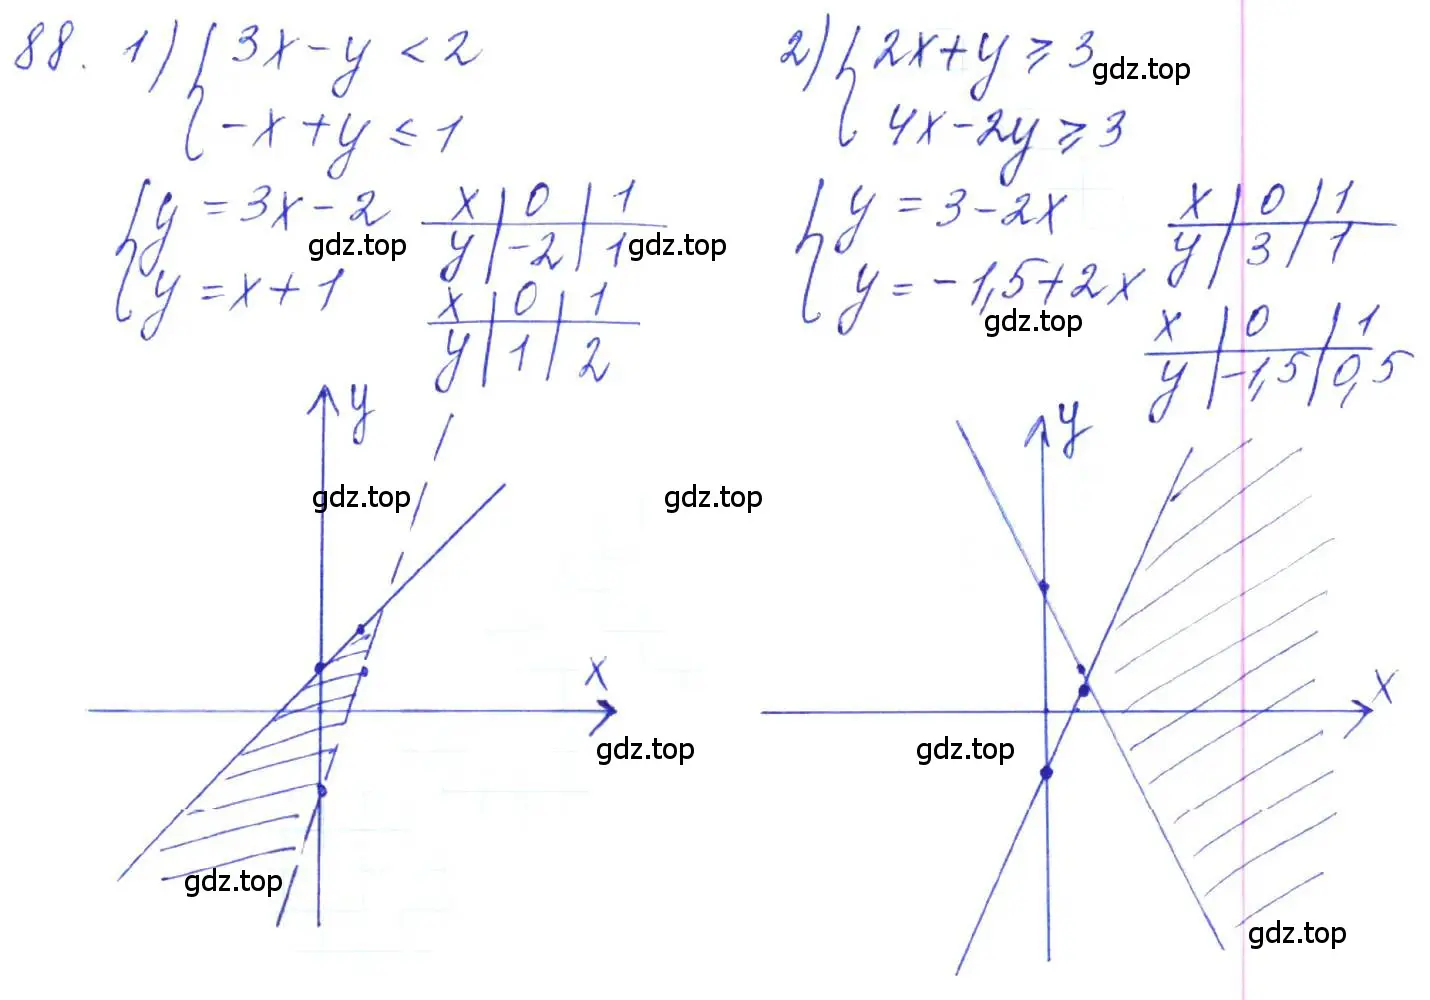 88. 1) { 3x - y < 2
-x + y ≤ 1
{ y = 3x - 2
y = x + 1
x | 0 | 1
y | -2 | 1
x | 0 | 1
y | 1 | 2
y
x
2) { 2x + y ≥ 3
4x - 2y ≥ 3
{ y = 3 - 2x
y = -1,5 + 2x
x | 0 | 1
y | 3 | 1
x | 0 | 1
y | -1,5 | 0,5
y
x
gdz.top
gdz.top
gdz.top
gdz.top
gdz.top
gdz.top
gdz.top
gdz.top
gdz.top
gdz.top